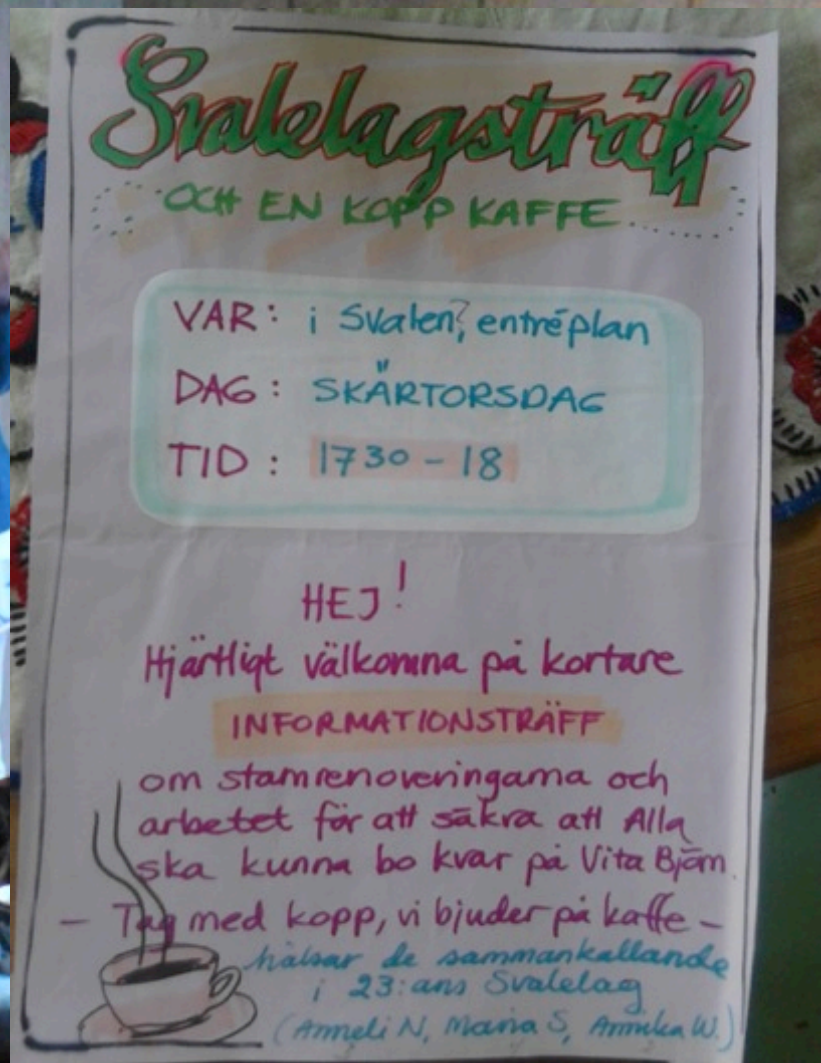 Svalelagsträff
OCH EN KOPP KAFFE
VAR: i Svalen, entréplan
DAG: SKÄRTORSDAG
TID: 1730-18
HEJ!
Hjärtligt välkomna på kortare
INFORMATIONSTRÄFF
om stamrenoveringarna och
arbetet för att säkra att Alla
ska kunna bo kvar på Vita Björn.
- Tag med kopp, vi bjuder på kaffe -
hälsar de sammankallande
i 23:ans Svalelag
(Anneli N, Maria S, Annika W.)